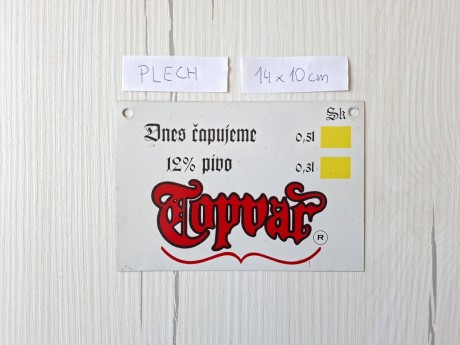 PLECH
14 x 10 cm
Sk
Dnes čapujeme 0,5l
12% pivo 0,3l
Topvar
R